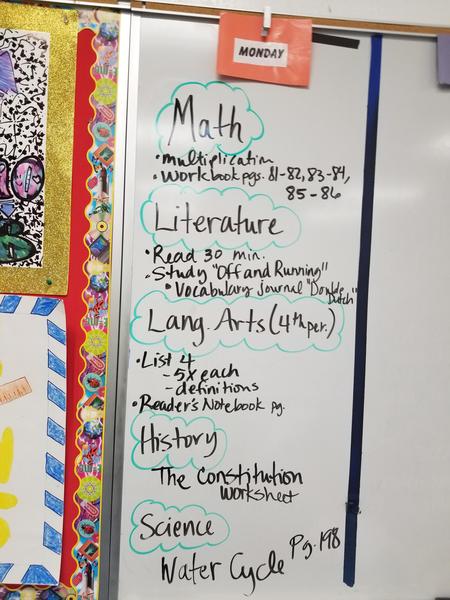 MONDAY
Math
• multiplication
• Workbook pgs. 81-82, 83-84,
85-86
Literature
• Read 30 min.
• Study "Off and Running"
• Vocabulary journal "Double
Dutch"
Lang. Arts (4th per.)
• List 4
- 5x each
- definitions
• Reader's Notebook pg.
History
The Constitution
Worksheet
Science
Water Cycle Pg. 198